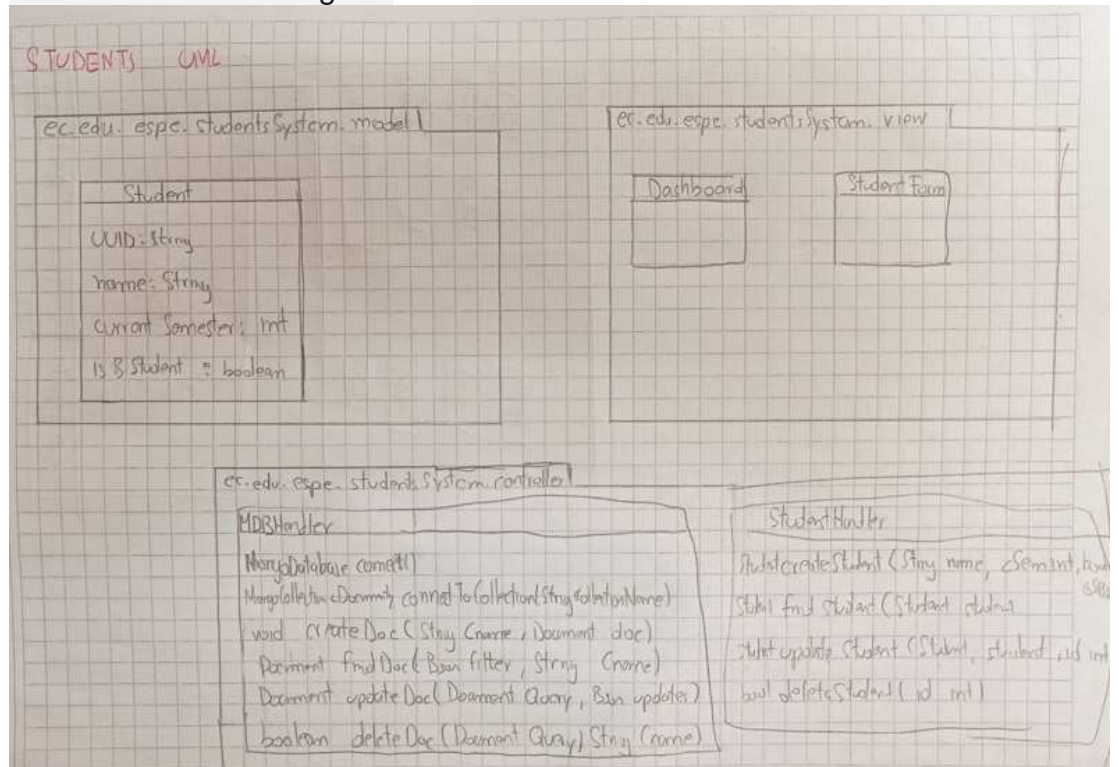 STUDENTS UML
ec.edu.espe.studentsSystem.model
Student
UUID: String
name: String
current Semester: int
is B Student : boolean
ec.edu.espe.studentsSystem.view
Dashboard
Student Form
ec.edu.espe.studentsSystem.controller
MDBHandler
MongoDatabase connect()
MongoCollection<Document> connectToCollection(String collectionName)
void createDoc(String Cname, Document doc)
Document findDoc(Bson filter, String Cname)
Document updateDoc(Document Query, Bson updates)
boolean deleteDoc(Document Query) String Cname)
StudentHandler
Student createStudent(String name, cSem int, bool
Student find student(Student
Student update Student (Student, student, id int
bool deleteStudent(id int)